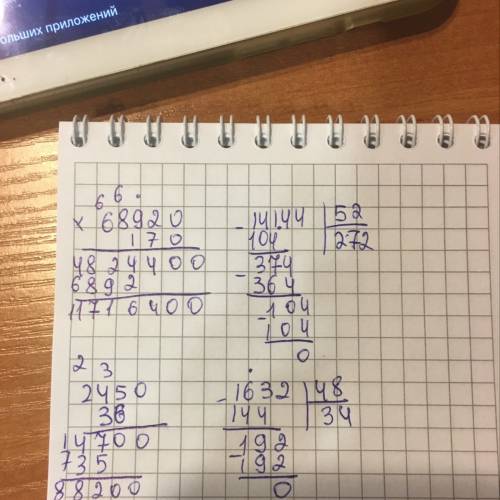 больших приложений
6 6 .
× 68920
170
48 24400
6892
11716400
- 14144 | 52
104 | 272
374
- 364
- 104
104
0
2 3
2450
36
14700
735
88200
- 1632 | 48
144 | 34
- 192
192
0